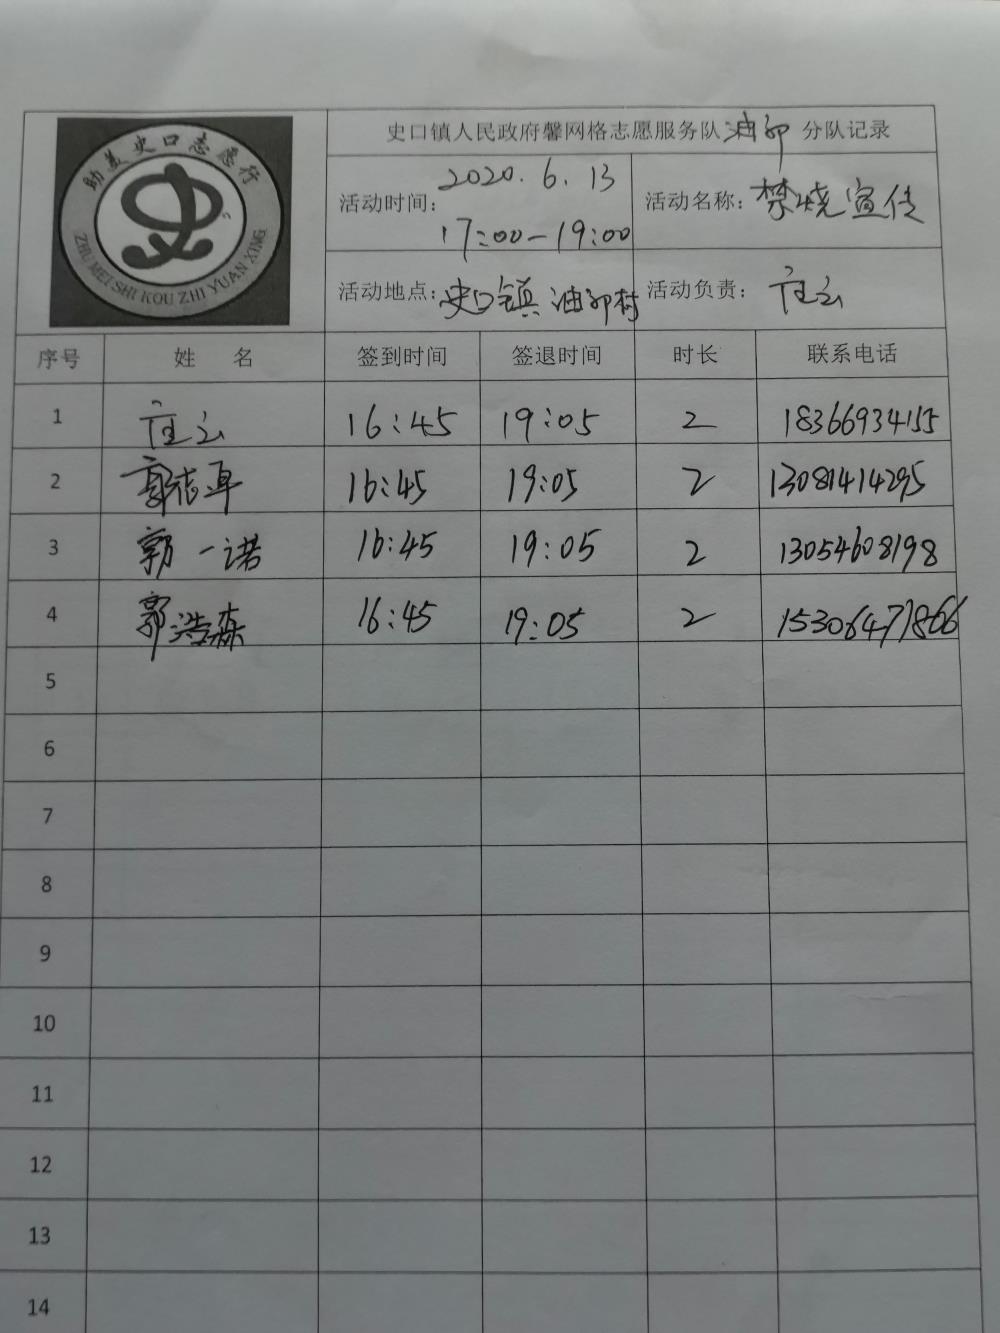 助美史口志愿行
ZHU MEI SHI KOU ZHI YUAN XING
史口镇人民政府馨网格志愿服务队油郭分队记录
活动时间: 2020.6.13
17:00-19:00
活动名称: 禁烧宣传
活动地点: 史口镇油郭村
活动负责: 庄云
序号 姓 名 签到时间 签退时间 时长 联系电话
1 庄云 16:45 19:05 2 18366934155
2 郭志军 16:45 19:05 2 13081414295
3 郭一诺 16:45 19:05 2 13054608198
4 郭浩森 16:45 19:05 2 15306471866
5
6
7
8
9
10
11
12
13
14